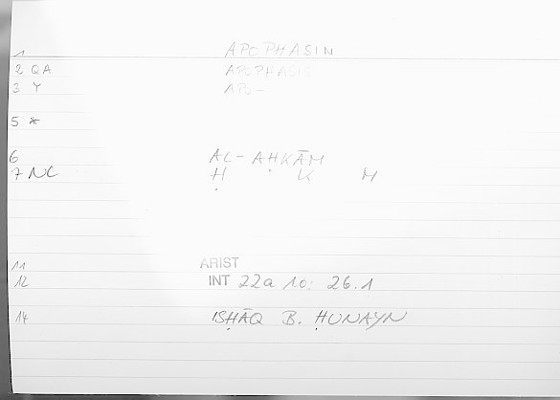 1 APOPHASIN
2 QA APOPHASIN
3 Y APO-
5 *
6 AL-AḤKĀM
7 NC Ḥ K M
11 ARIST
12 INT 22a 10: 26.1
14 ISḤĀQ B. ḤUNAYN